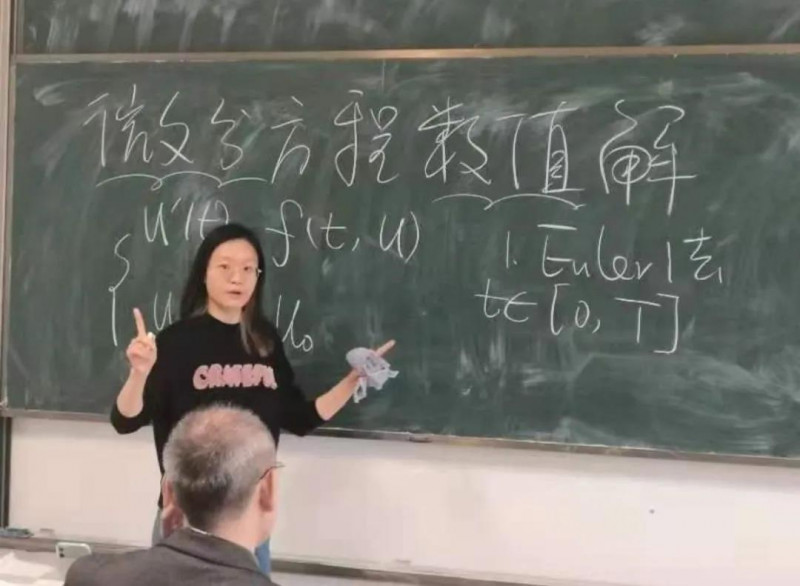 微分方程数值解
u'(t) f(t, u)
u u₀
1. Euler法
t∈[0, T]